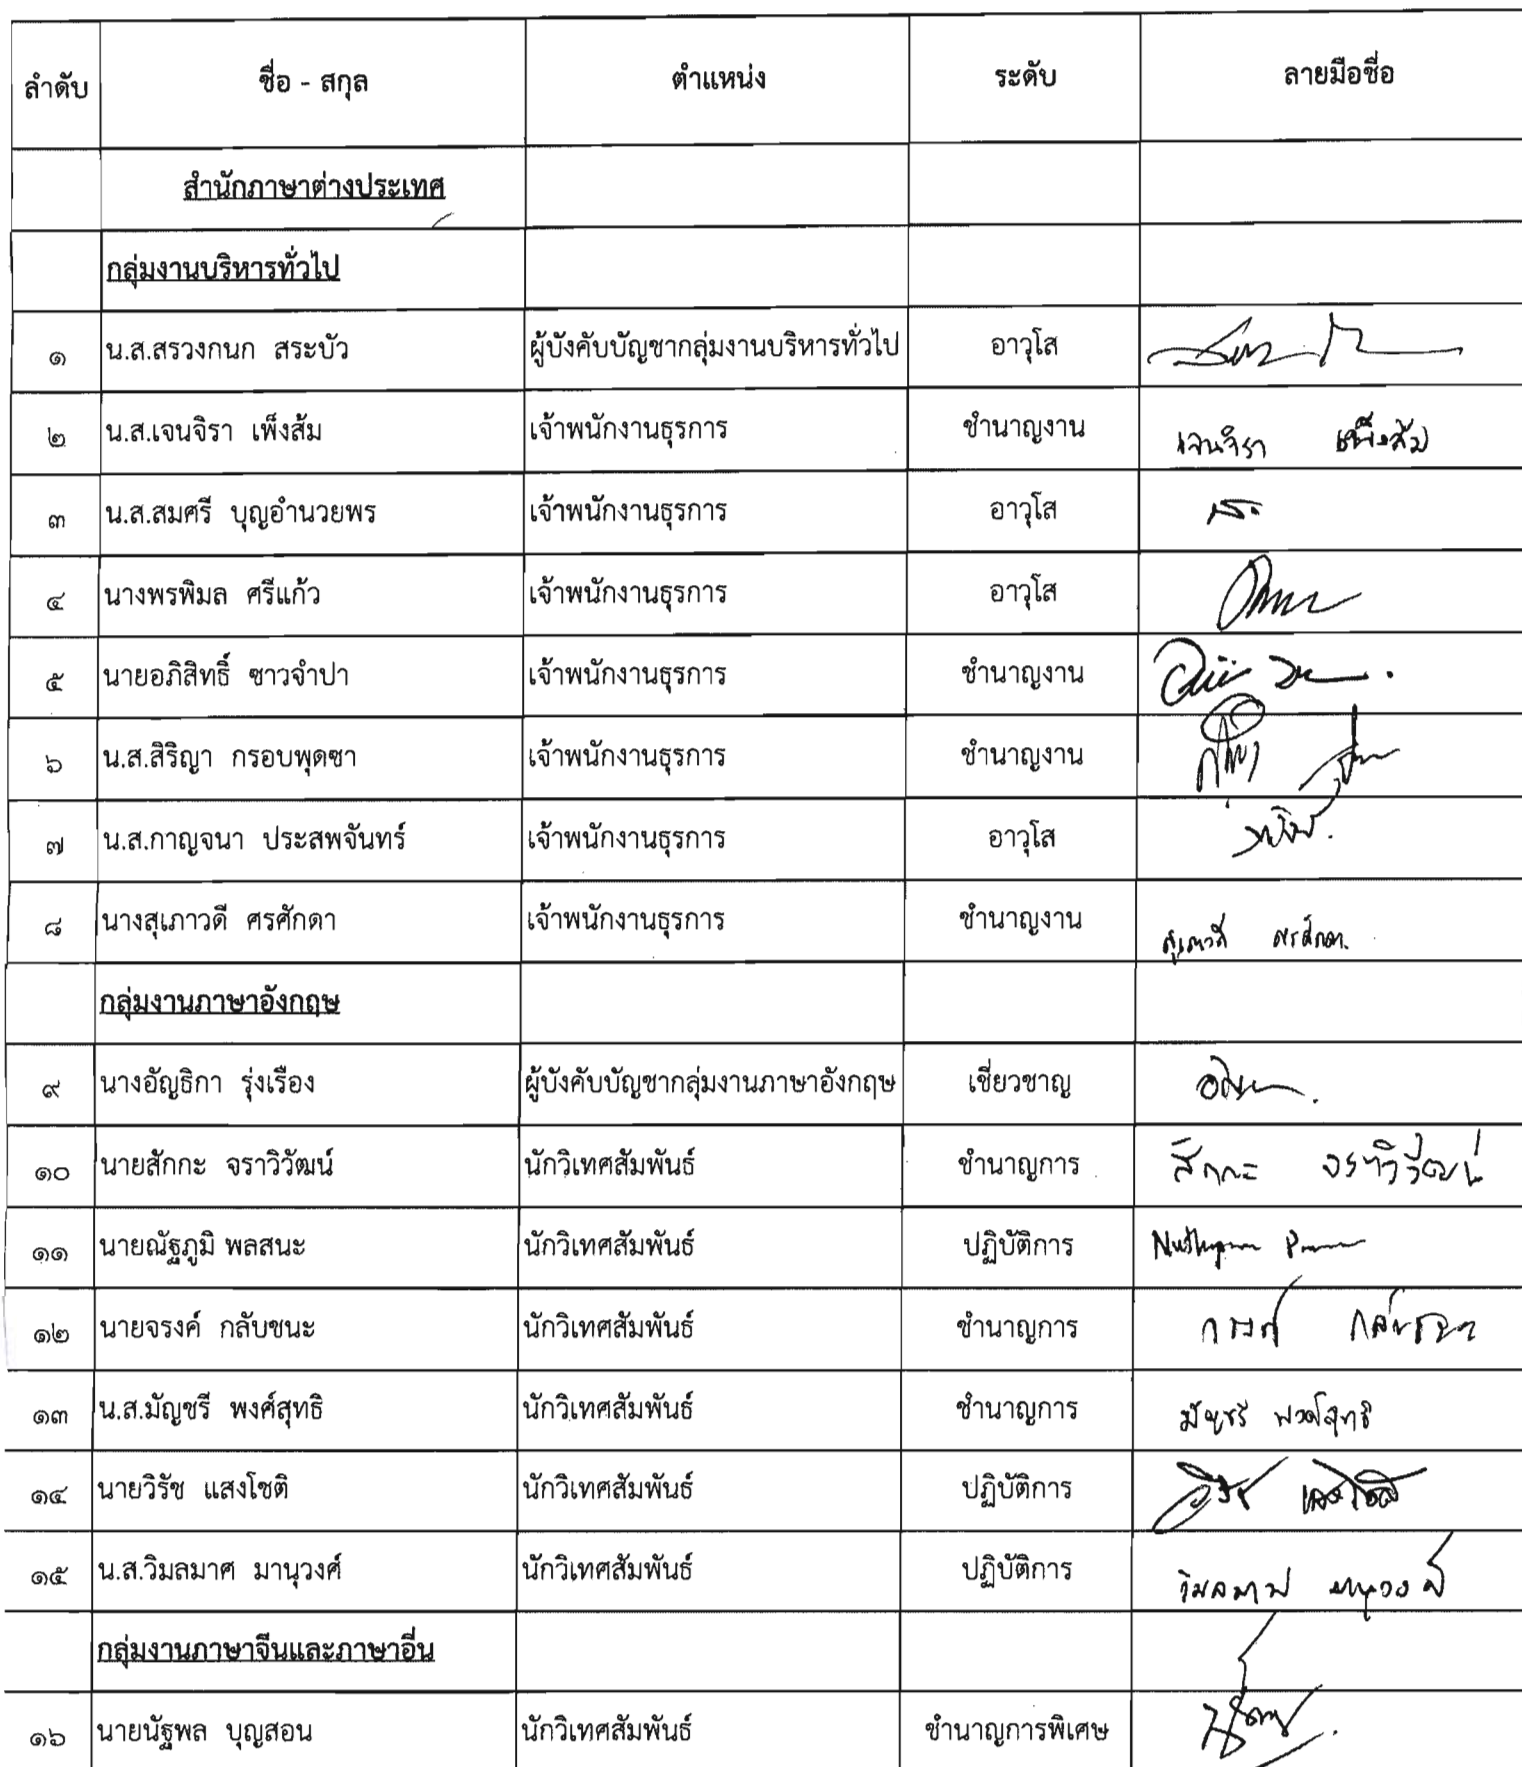 ลำดับ ชื่อ - สกุล ตำแหน่ง ระดับ ลายมือชื่อ
สำนักภาษาต่างประเทศ
กลุ่มงานบริหารทั่วไป
๑ น.ส.สรวงกนก สระบัว ผู้บังคับบัญชากลุ่มงานบริหารทั่วไป อาวุโส
๒ น.ส.เจนจิรา เพ็งส้ม เจ้าพนักงานธุรการ ชำนาญงาน เจนจิรา เพ็งส้ม
๓ น.ส.สมศรี บุญอำนวยพร เจ้าพนักงานธุรการ อาวุโส
๔ นางพรพิมล ศรีแก้ว เจ้าพนักงานธุรการ อาวุโส
๕ นายอภิสิทธิ์ ซาวจำปา เจ้าพนักงานธุรการ ชำนาญงาน
๖ น.ส.สิริญา กรอบพุดซา เจ้าพนักงานธุรการ ชำนาญงาน
๗ น.ส.กาญจนา ประสพจันทร์ เจ้าพนักงานธุรการ อาวุโส
๘ นางสุเภาวดี ศรศักดา เจ้าพนักงานธุรการ ชำนาญงาน สุเภาวดี ศรศักดา
กลุ่มงานภาษาอังกฤษ
๙ นางอัญธิกา รุ่งเรือง ผู้บังคับบัญชากลุ่มงานภาษาอังกฤษ เชี่ยวชาญ
๑๐ นายสักกะ จราวิวัฒน์ นักวิเทศสัมพันธ์ ชำนาญการ สักกะ จราวิวัฒน์
๑๑ นายณัฐภูมิ พลสนะ นักวิเทศสัมพันธ์ ปฏิบัติการ
๑๒ นายจรงค์ กลับชนะ นักวิเทศสัมพันธ์ ชำนาญการ จรงค์ กลับชนะ
๑๓ น.ส.มัญชรี พงศ์สุทธิ นักวิเทศสัมพันธ์ ชำนาญการ มัญชรี พงศ์สุทธิ
๑๔ นายวิรัช แสงโชติ นักวิเทศสัมพันธ์ ปฏิบัติการ วิรัช แสงโชติ
๑๕ น.ส.วิมลมาศ มานุวงศ์ นักวิเทศสัมพันธ์ ปฏิบัติการ วิมลมาศ มานุวงศ์
กลุ่มงานภาษาจีนและภาษาอื่น
๑๖ นายนัฐพล บุญสอน นักวิเทศสัมพันธ์ ชำนาญการพิเศษ